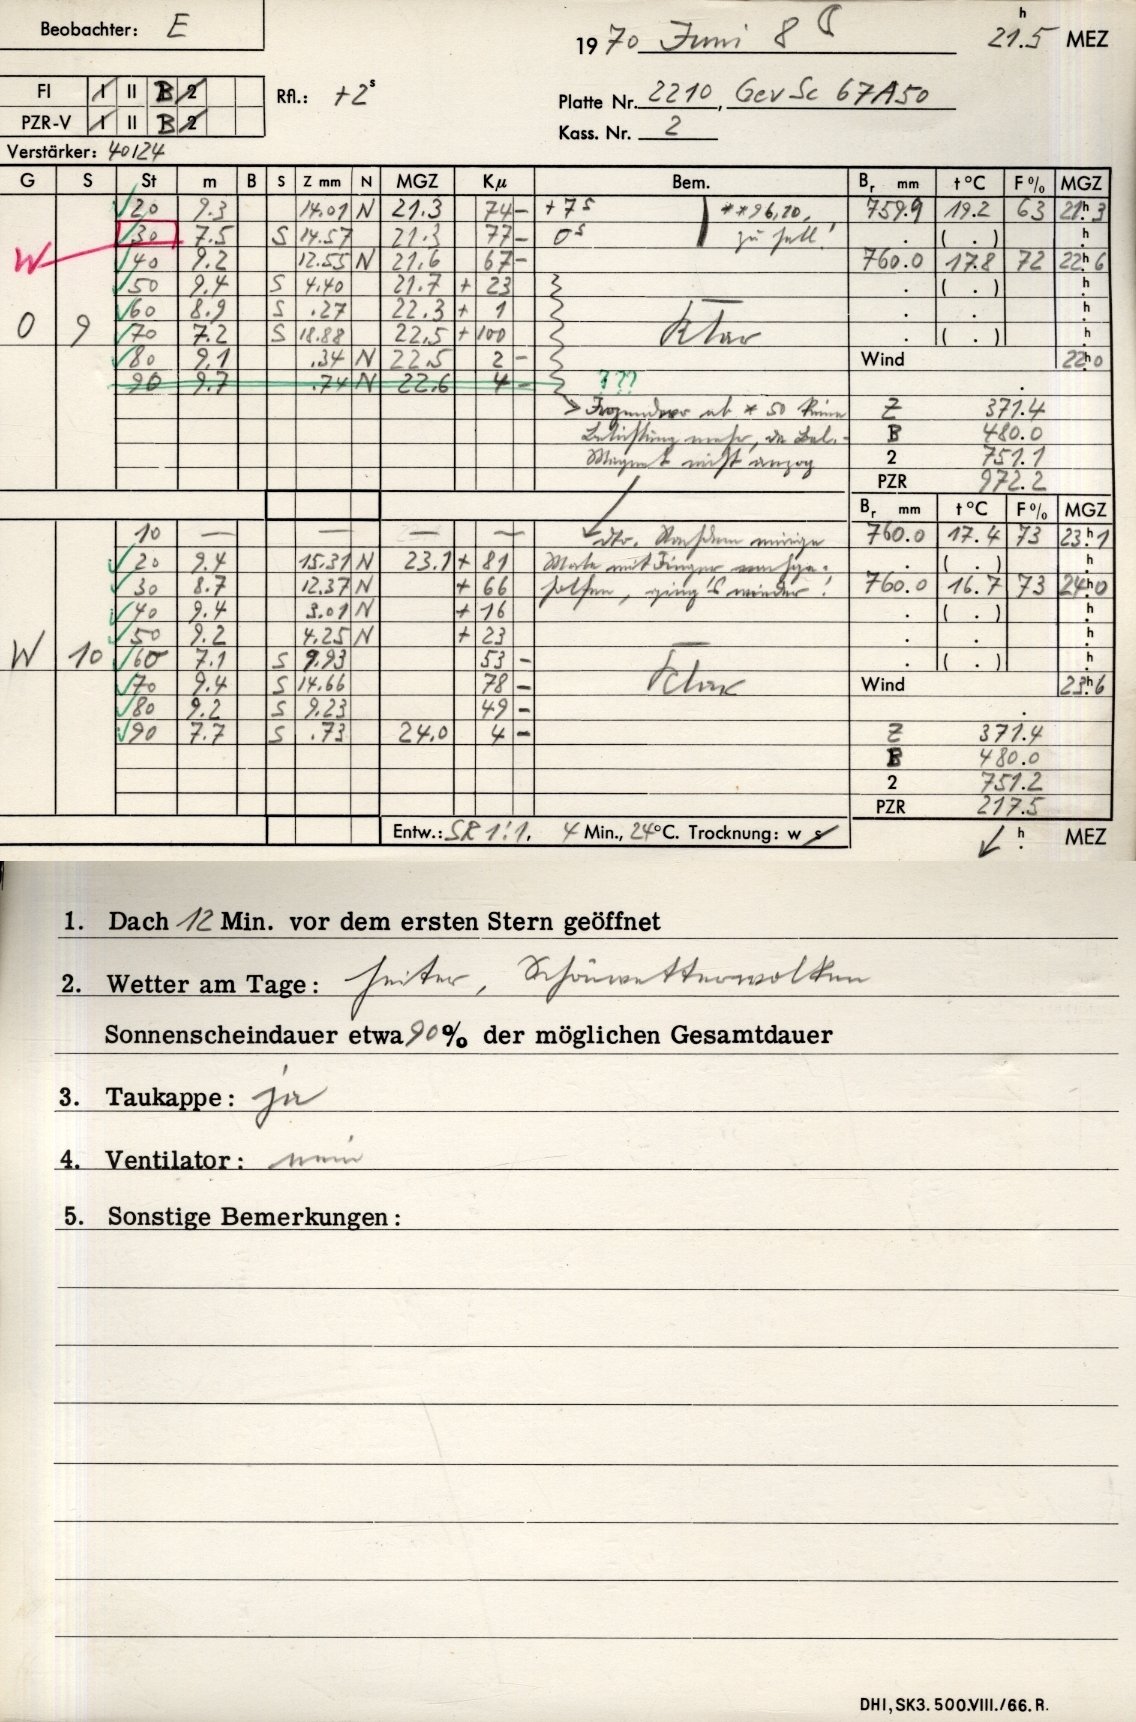 Beobachter: E
1970 Juni 8 21.5 h MEZ
FI I II B 2
Rfl.: +2 s
Platte Nr. 2210, Gev Sc 67A50
PZR-V I II B 2
Kass. Nr. 2
Verstärker: 40124
G S St m B S Z mm N MGZ Kμ Bem. Br mm t °C F % MGZ
20 9.3 14.01 N 21.3 74 - +7 s **96,20, 759.9 19.2 63 21 h 3
W 30 7.5 S 14.57 21.3 77 - 0 s zu hell! . ( . ) h
40 9.2 12.55 N 21.6 67 - 760.0 17.8 72 22 h 6
50 9.4 S 4.40 21.7 + 23 . ( . ) h
60 8.9 S .27 22.3 + 1 . . h
O 9 70 7.2 S 18.88 22.5 + 100 Klar . ( . ) h
80 9.1 .34 N 22.5 2 - Wind 22 h 0
90 9.7 .74 N 22.6 4 - ??? .
Irgendwo ab * 50 keine Z 371.4
Belichtung mehr, da Bel.- B 480.0
Magnet nicht anzog 2 751.1
PZR 972.2
Br mm t °C F % MGZ
10 — — — — dto. Nachdem einige 760.0 17.4 73 23 h 1
20 9.4 15.31 N 23.1 + 81 Male mit Finger nachge- . ( . ) h
30 8.7 12.37 N + 66 holfen, ging's wieder! 760.0 16.7 73 24 h 0
40 9.4 3.01 N + 16 . ( . ) h
50 9.2 4.25 N + 23 . . h
W 10 60 7.1 S 9.93 53 - Klar . ( . ) h
70 9.4 S 14.66 78 - Wind 23 h 6
80 9.2 S 9.23 49 - .
90 7.7 S .73 24.0 4 - Z 371.4
B 480.0
2 751.2
PZR 217.5
Entw.: SR 1:1, 4 Min., 24°C. Trocknung: w s h MEZ
1. Dach 12 Min. vor dem ersten Stern geöffnet
2. Wetter am Tage: heiter, Schönwetterwolken
Sonnenscheindauer etwa 90% der möglichen Gesamtdauer
3. Taukappe: ja
4. Ventilator: nein
5. Sonstige Bemerkungen:
DHI, SK3. 500.VIII./66. R.